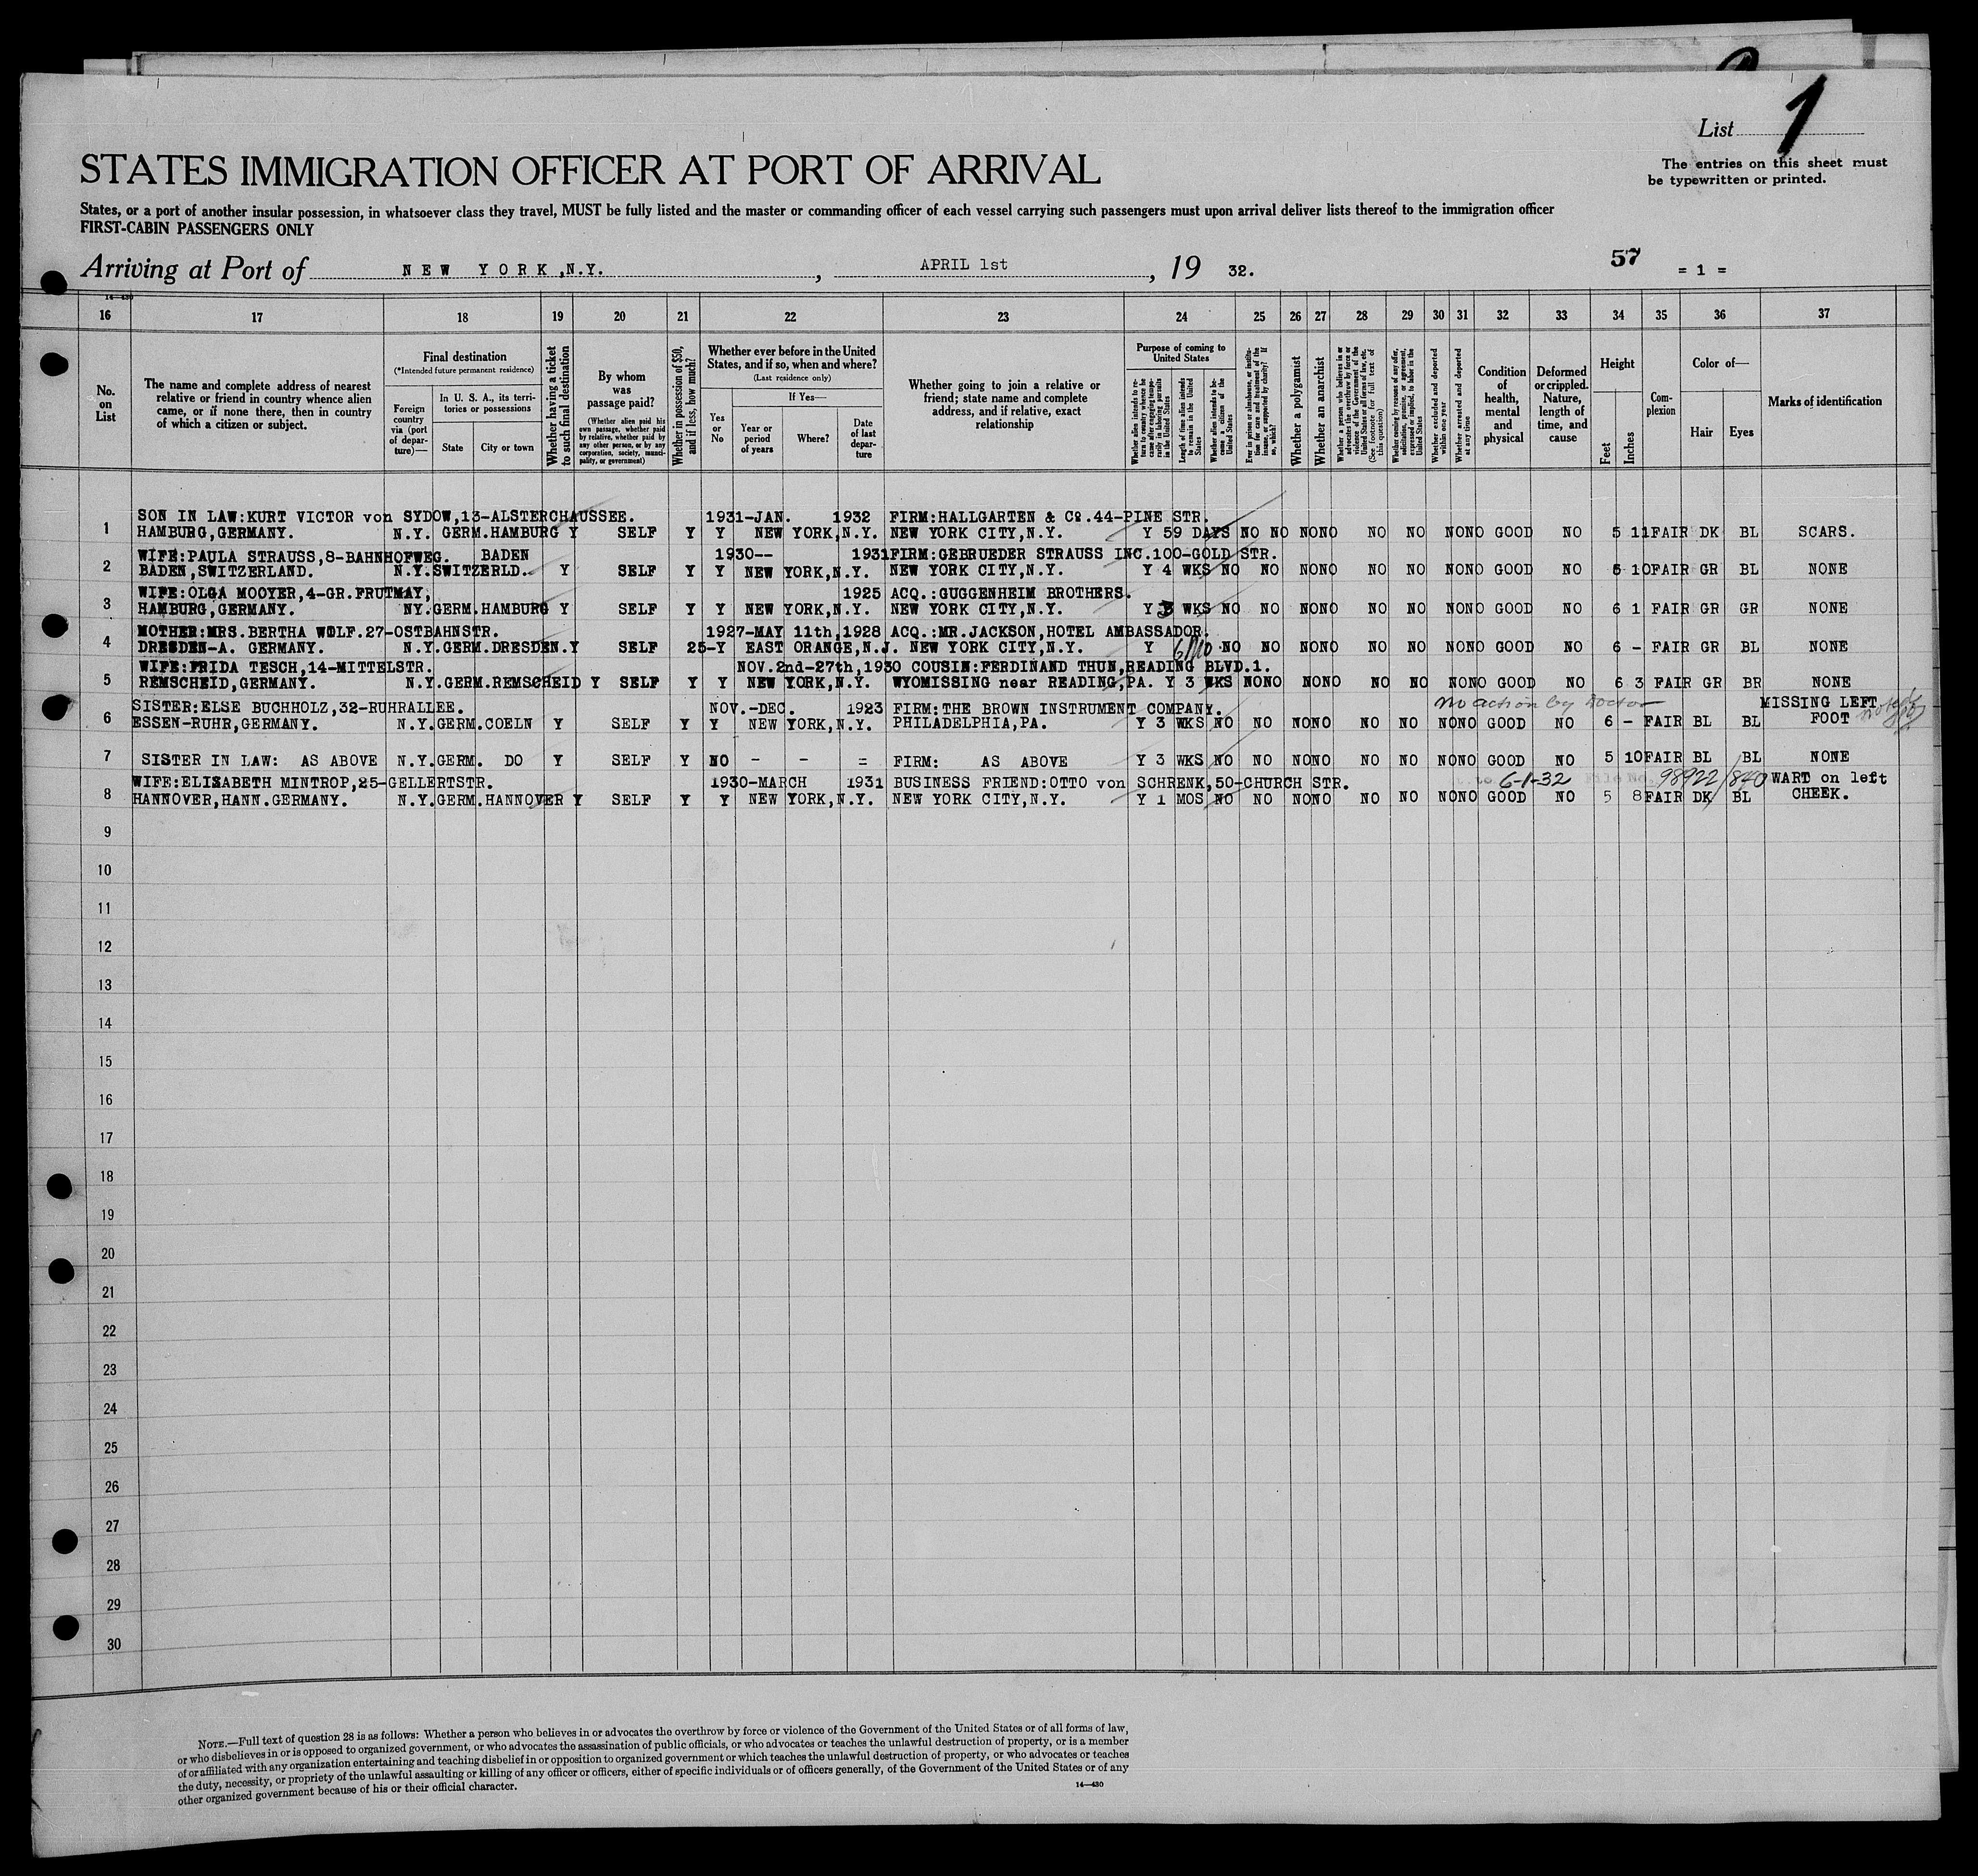 List 1
The entries on this sheet must
be typewritten or printed.
STATES IMMIGRATION OFFICER AT PORT OF ARRIVAL
States, or a port of another insular possession, in whatsoever class they travel, MUST be fully listed and the master or commanding officer of each vessel carrying such passengers must upon arrival deliver lists thereof to the immigration officer
FIRST-CABIN PASSENGERS ONLY
Arriving at Port of NEW YORK,N.Y. , APRIL 1st , 19 32. 57 = 1 =
14—430
16 17 18 19 20 21 22 23 24 25 26 27 28 29 30 31 32 33 34 35 36 37
No. on List
The name and complete address of nearest
relative or friend in country whence alien
came, or if none there, then in country
of which a citizen or subject.
Final destination
(*Intended future permanent residence)
Foreign country via (port of departure)—
In U. S. A., its territories or possessions
State
City or town
Whether having a ticket to such final destination
By whom was passage paid?
(Whether alien paid his own passage, whether paid by relative, whether paid by any other person, or by any corporation, society, municipality, or government)
Whether in possession of $50, and if less, how much?
Whether ever before in the United States, and if so, when and where?
(Last residence only)
Yes or No
If Yes—
Year or period of years
Where?
Date of last departure
Whether going to join a relative or
friend; state name and complete
address, and if relative, exact
relationship
Purpose of coming to United States
Whether alien intends to return to country whence he came after engaging temporarily in laboring pursuits in the United States
Length of time alien intends to remain in the United States
Whether alien intends to become a citizen of the United States
Ever in prison or almshouse, or institution for care and treatment of the insane, or supported by charity? If so, which?
Whether a polygamist
Whether an anarchist
Whether a person who believes in or advocates the overthrow by force or violence of the Government of the United States or all forms of law, etc. (See footnote for full text of this question)
Whether coming by reasons of any offer, solicitation, promise, or agreement, expressed or implied, to labor in the United States
Whether excluded and deported within one year
Whether arrested and deported at any time
Condition of health, mental and physical
Deformed or crippled. Nature, length of time, and cause
Height
Feet
Inches
Complexion
Color of—
Hair
Eyes
Marks of identification
SON IN LAW:KURT VICTOR von SYDOW,13-ALSTERCHAUSSEE. 1931-JAN. 1932 FIRM:HALLGARTEN & Co.44-PINE STR.
1 HAMBURG,GERMANY. N.Y. GERM.HAMBURG Y SELF Y Y NEW YORK,N.Y. NEW YORK CITY,N.Y. Y 59 DAYS NO NO NONO NO NO NONO GOOD NO 5 11 FAIR DK BL SCARS.
WIFE:PAULA STRAUSS,8-BAHNHOFWEG. BADEN 1930-- 1931 FIRM:GEBRUEDER STRAUSS INC.100-GOLD STR.
2 BADEN,SWITZERLAND. N.Y.SWITZERLD. Y SELF Y Y NEW YORK,N.Y. NEW YORK CITY,N.Y. Y 4 WKS NO NO NONO NO NO NONO GOOD NO 10 FAIR GR BL NONE
WIFE:OLGA MOOYER,4-GR.FRUTMAY, 1925 ACQ.:GUGGENHEIM BROTHERS.
3 HAMBURG,GERMANY. NY.GERM.HAMBURG Y SELF Y Y NEW YORK,N.Y. NEW YORK CITY,N.Y. Y 3 WKS NO NO NONO NO NO NONO GOOD NO 6 1 FAIR GR GR NONE
MOTHER:MRS.BERTHA WOLF.27-OSTBAHNSTR. 1927-MAY 11th,1928 ACQ.:MR.JACKSON,HOTEL AMBASSADOR.
4 DRESDEN-A. GERMANY. N.Y.GERM.DRESDEN.Y SELF 25-Y EAST ORANGE,N.J. NEW YORK CITY,N.Y. Y 6 Mo NO NO NONO NO NO NONO GOOD NO 6 - FAIR GR BL NONE
WIFE:FRIDA TESCH,14-MITTELSTR. NOV.2nd-27th,1930 COUSIN:FERDINAND THUN,READING BLVD.1.
5 REMSCHEID,GERMANY. N.Y.GERM.REMSCHEID Y SELF Y Y NEW YORK,N.Y. WYOMISSING near READING,PA. Y 3 WKS NONO NONO NO NO NONO GOOD NO 6 3 FAIR GR BR NONE
SISTER:ELSE BUCHHOLZ,32-RUHRALLEE. NOV.-DEC. 1923 FIRM:THE BROWN INSTRUMENT COMPANY. no action by Doctor MISSING LEFT
6 ESSEN-RUHR,GERMANY. N.Y.GERM.COELN Y SELF Y Y NEW YORK,N.Y. PHILADELPHIA,PA. Y 3 WKS NO NO NONO NO NO NONO GOOD NO 6 - FAIR BL BL FOOT
7 SISTER IN LAW: AS ABOVE N.Y.GERM. DO Y SELF Y NO - - = FIRM: AS ABOVE Y 3 WKS NO NO NONO NO NO NONO GOOD NO 5 10 FAIR BL BL NONE
WIFE:ELISABETH MINTROP,25-GELLERTSTR. 1930-MARCH 1931 BUSINESS FRIEND:OTTO von SCHRENK,50-CHURCH STR. to 6-1-32 File No. 98922/840 WART on left
8 HANNOVER,HANN.GERMANY. N.Y.GERM.HANNOVER Y SELF Y Y NEW YORK,N.Y. NEW YORK CITY,N.Y. Y 1 MOS NO NO NONO NO NO NONO GOOD NO 5 8 FAIR DK BL CHEEK.
9
10
11
12
13
14
15
16
17
18
19
20
21
22
23
24
25
26
27
28
29
30
NOTE.—Full text of question 28 is as follows: Whether a person who believes in or advocates the overthrow by force or violence of the Government of the United States or of all forms of law,
or who disbelieves in or is opposed to organized government, or who advocates the assassination of public officials, or who advocates or teaches the unlawful destruction of property, or is a member
of or affiliated with any organization entertaining and teaching disbelief in or opposition to organized government or which teaches the unlawful destruction of property, or who advocates or teaches
the duty, necessity, or propriety of the unlawful assaulting or killing of any officer or officers, either of specific individuals or of officers generally, of the Government of the United States or of any
other organized government because of his or their official character.
14—430